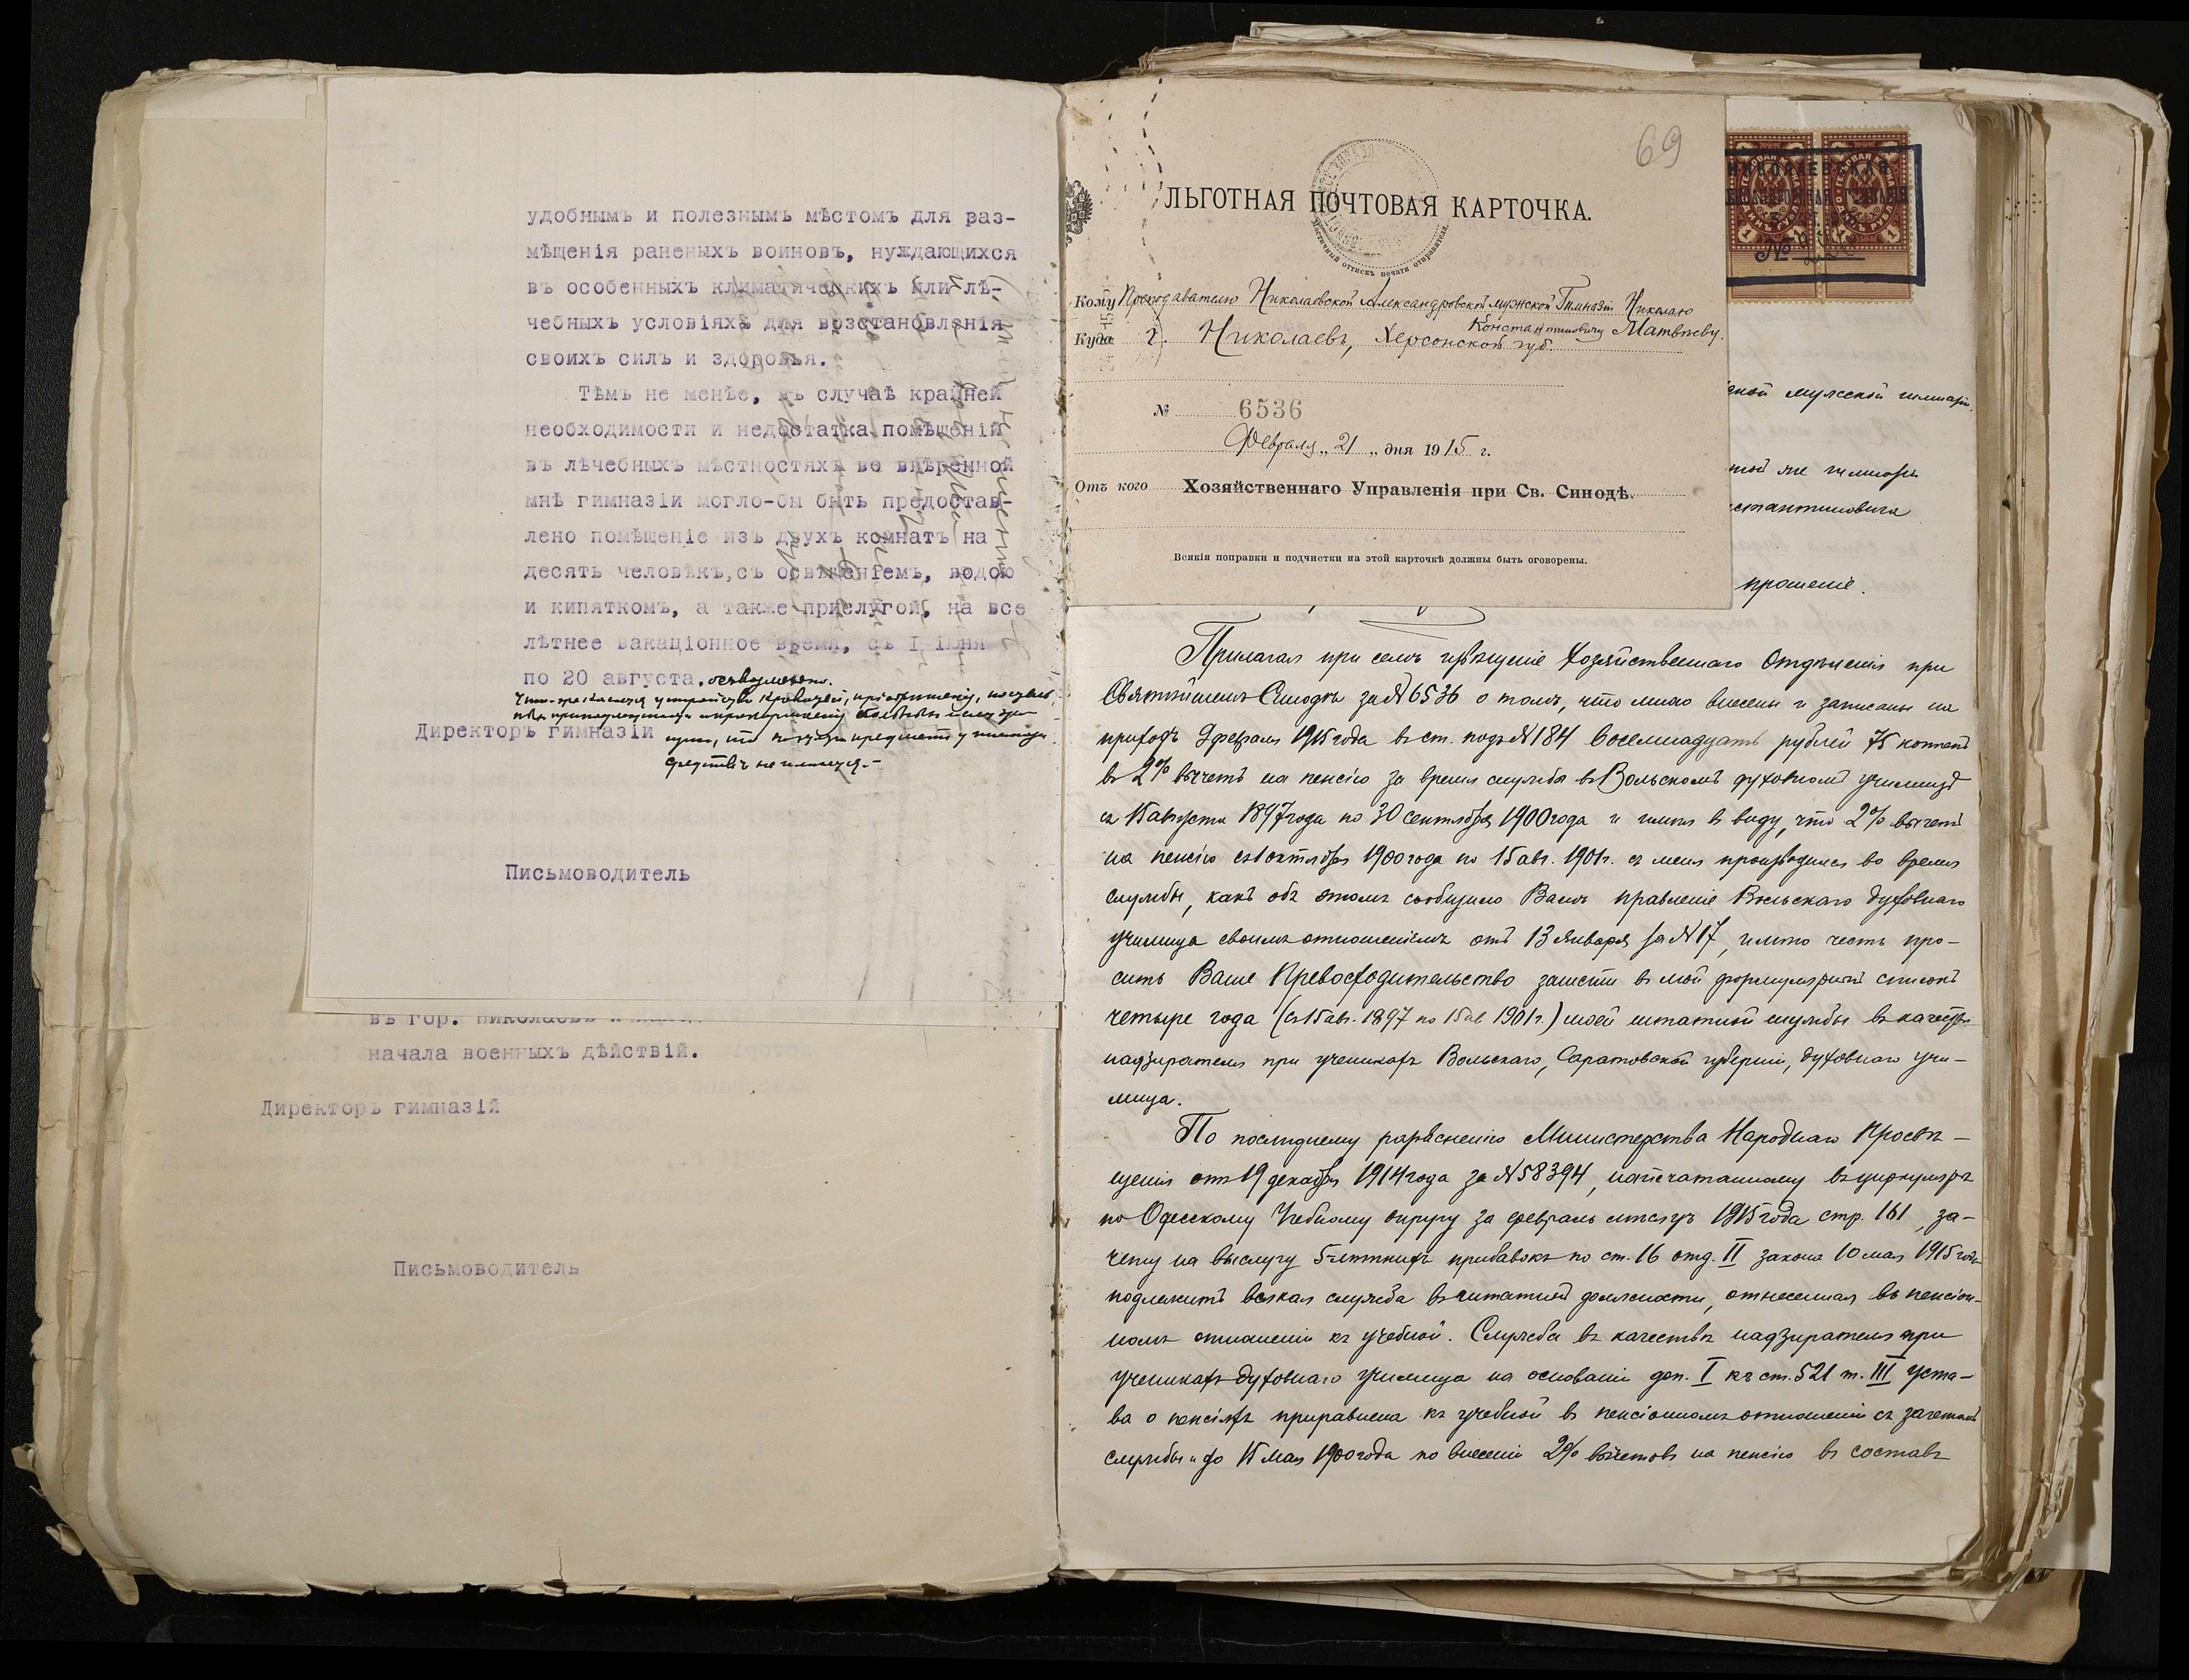 удобнымъ и полезнымъ мѣстомъ для раз-
мѣщенія раненыхъ воиновъ, нуждающихся
въ особенныхъ климатическихъ или лѣ-
чебныхъ условіяхъ для возстановленія
своихъ силъ и здоровья.
Тѣмъ не менѣе, въ случаѣ крайней
необходимости и недостатка помѣщеній
въ лѣчебныхъ мѣстностяхъ во ввѣренной
мнѣ гимназіи могло-бы быть предостав-
лено помѣщеніе изъ двухъ комнатъ на
десять человѣкъ, съ освѣщеніемъ, водою
и кипяткомъ, а также прислугой, на все
лѣтнее вакаціонное время, съ I іюня
по 20 августа.
Директоръ гимназіи
средствъ не имѣется.-
Письмоводитель
въ гор. Николаевѣ
начала военныхъ дѣйствій.
Директоръ гимназій
Письмоводитель
69
ЛЬГОТНАЯ ПОЧТОВАЯ КАРТОЧКА.
Кому Преподавателю Николаевской Александровской мужской Гимназіи Николаю
Константиновичу Матвѣеву.
Куда г. Николаевъ, Херсонской губ.
№ 6536
Февраля „ 21 „ дня 1915 г.
Отъ кого Хозяйственнаго Управленія при Св. Синодѣ.
Всякія поправки и подчистки на этой карточкѣ должны быть оговорены.
мужской гимназіи
той же гимназіи
стантиновича
прошеніе.
Прилагая при семъ извѣщеніе Хозяйственнаго Отдѣленія при
Святѣйшемъ Синодѣ за № 6536 о томъ, что мною внесены и записаны на
приходъ 9 февраля 1915 года въ ст. подъ № 184 восемнадцать рублей 75 копѣекъ
въ 2% вычетъ на пенсію за время службы въ Вольскомъ духовномъ училищѣ
съ 15 августа 1897 года по 30 сентября 1900 года и имѣя въ виду, что 2% вычетъ
на пенсію съ 1 октября 1900 года по 15 авг. 1901 г. съ меня производился во время
службы, какъ объ этомъ сообщило Вамъ правленіе Вольскаго духовнаго
училища своимъ отношеніемъ отъ 13 января за № 17, имѣю честь про-
сить Ваше Превосходительство занести въ мой формулярный списокъ
четыре года (съ 15 авг. 1897 по 15 ав 1901 г.) моей штатной службы въ качествѣ
надзирателя при ученикахъ Вольскаго, Саратовской губерніи, духовнаго учи-
лища.
По послѣднему разъясненію Министерства Народнаго Просвѣ-
щенія отъ 19 декабря 1914 года за № 58394, напечатанному въ циркулярѣ
по Одесскому Учебному округу за февраль мѣсяцъ 1915 года стр. 161, за-
чету на выслугу 5-лѣтнихъ прибавокъ по ст. 16 отд. II закона 10 мая 1915 года
подлежитъ всякая служба въ штатной должности, отнесенная въ пенсіон-
номъ отношеніи къ учебной. Служба въ качествѣ надзирателя при
ученикахъ духовнаго училища на основаніи доп. I къ ст. 521 т. III Уста-
ва о пенсіяхъ приравнена къ учебной въ пенсіонномъ отношеніи съ зачетомъ
службы и до 15 мая 1900 года по внесеніи 2% вычетовъ на пенсію въ составъ